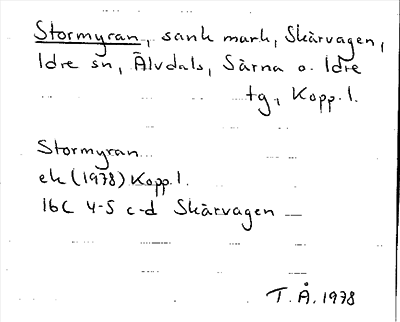 Stormyran, sank mark, Skärvagen,
Idre sn, Älvdals, Särna o. Idre
tg, Kopp. l.
Stormyran
ek (1978) Kopp. l.
16C 4-5 c-d Skärvagen —
T. Å. 1978